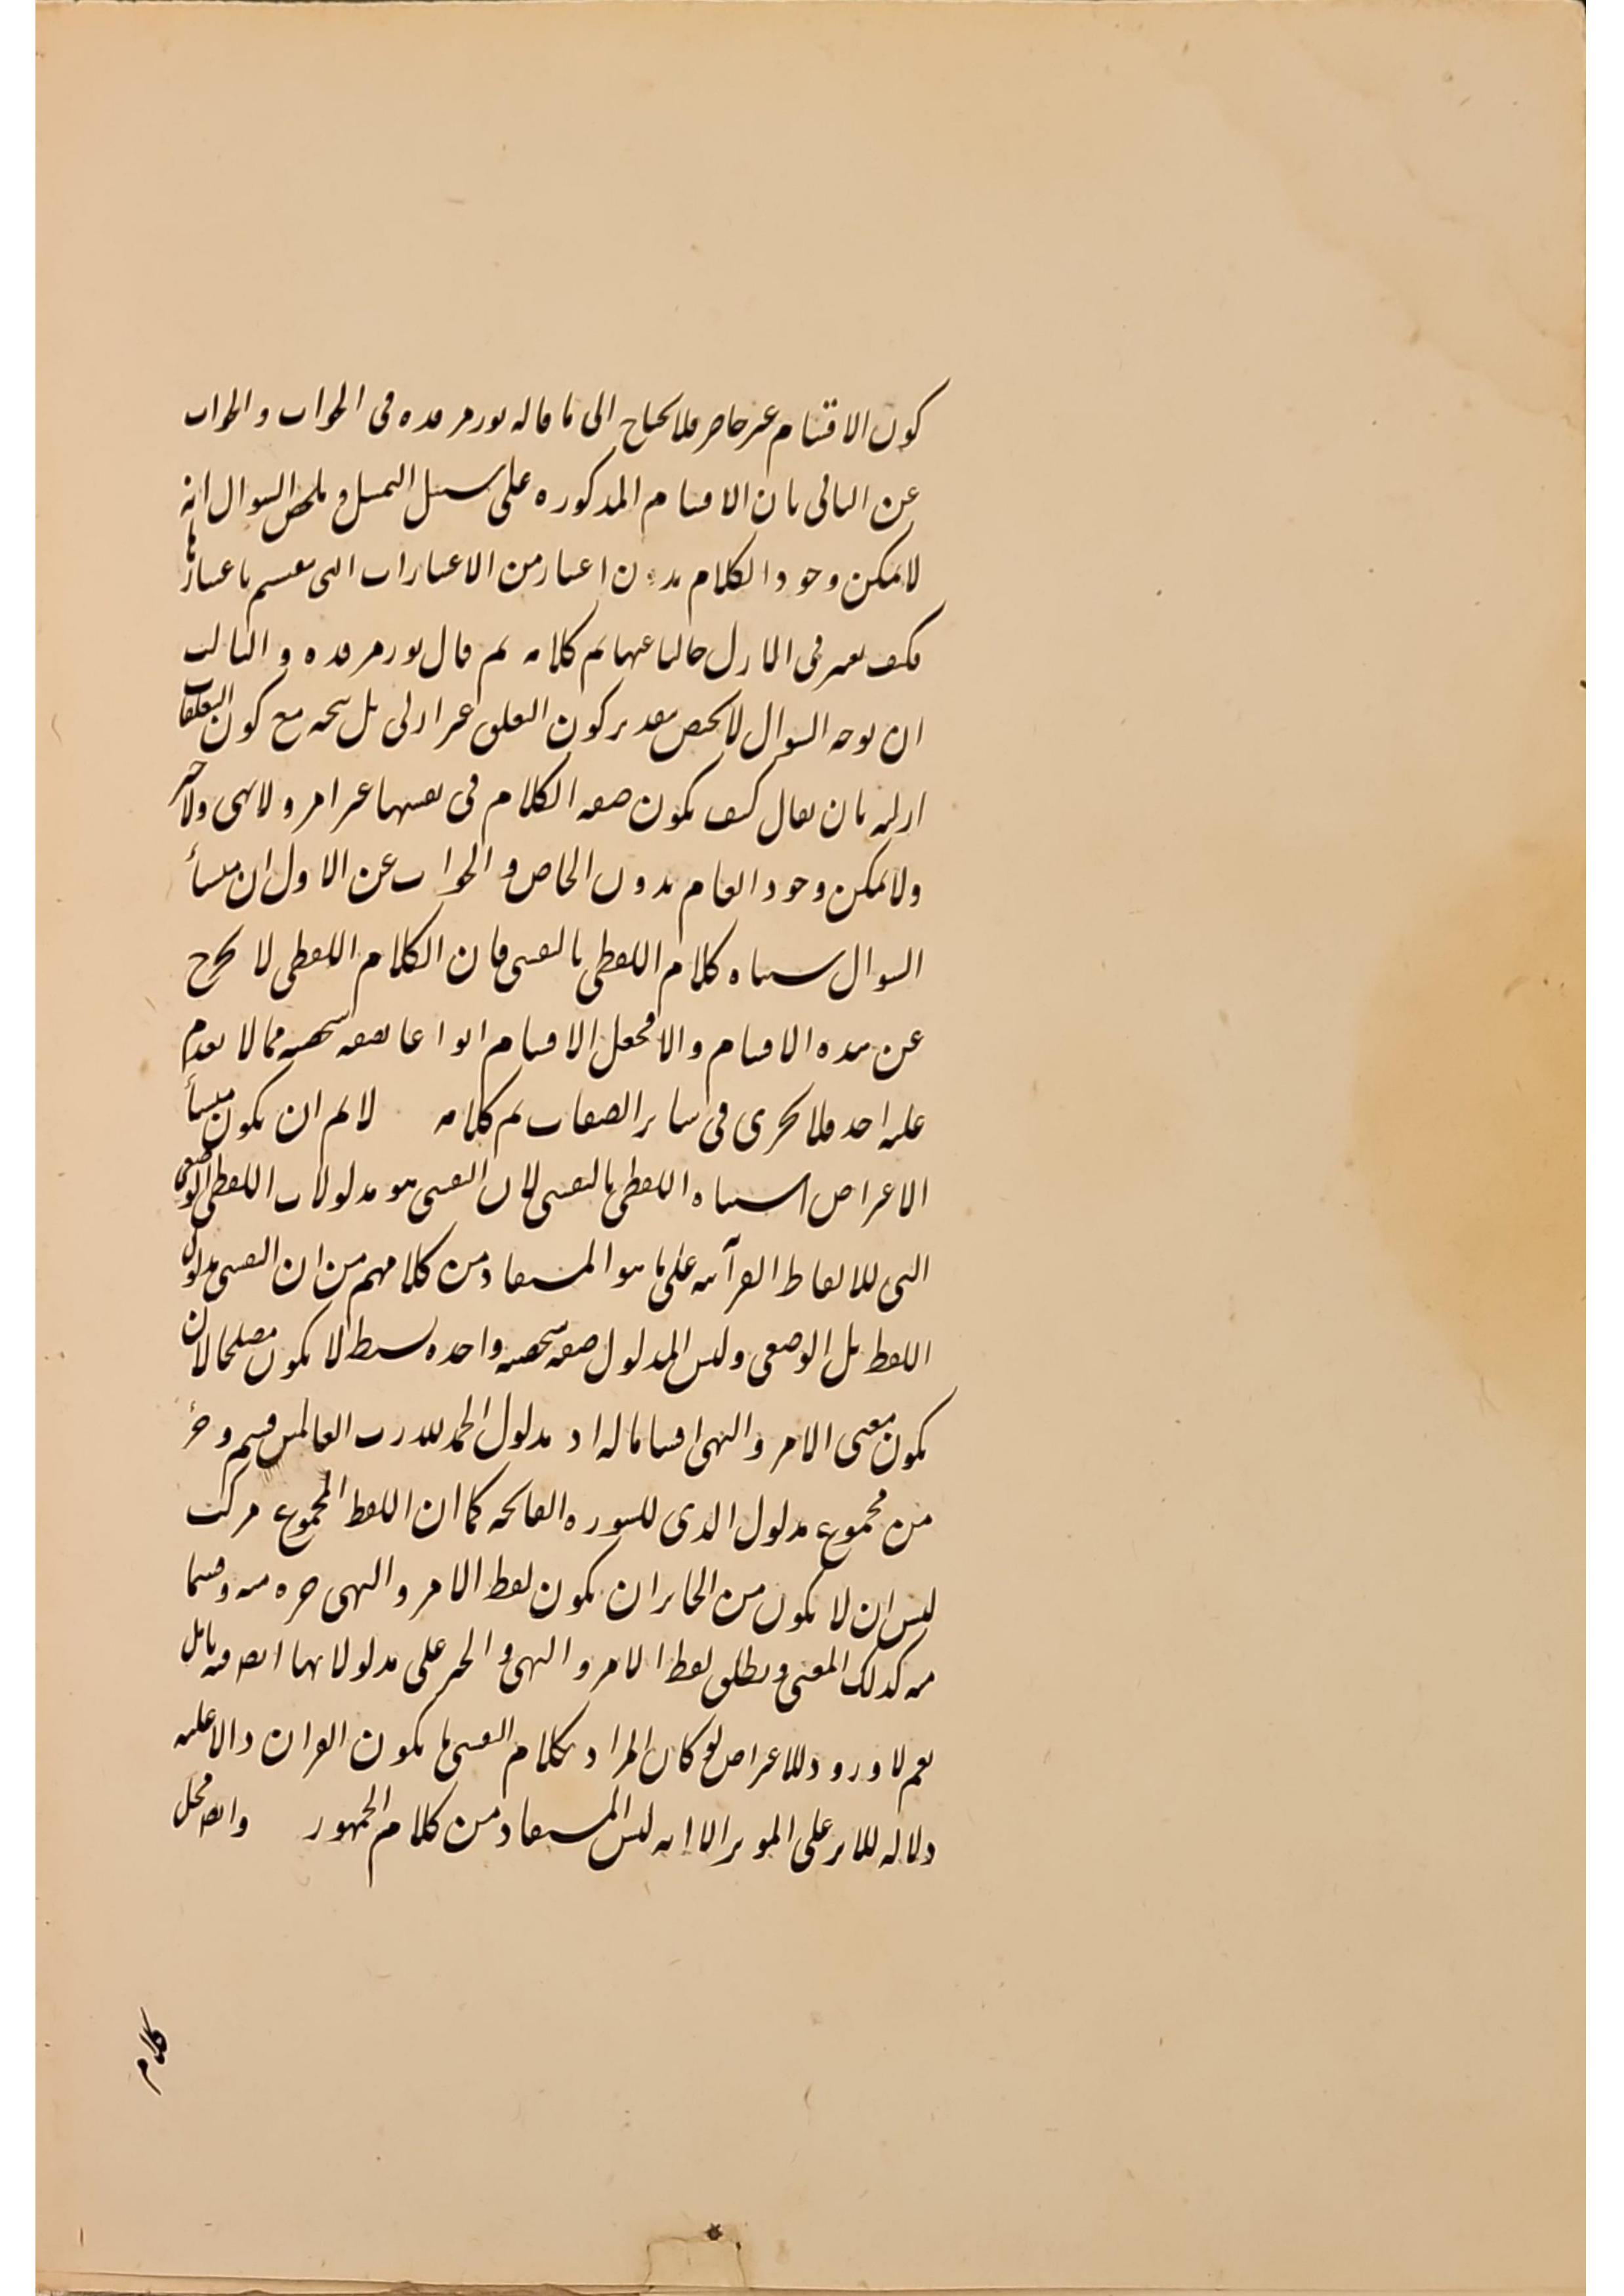 كون الاقسام غير حاصر فلا يحتاج الى ما قاله نور مرقده فى الجواب والجواب
عن الثانى بان الاقسام المذكوره على سبيل التمثيل و ملخص السوال انه
لا يمكن وجود الكلام بدون اعتبار من الاعتبارات التى ينقسم باعتبارها
فكيف يعتبر فى الازل خاليا عنها تم كلامه ثم قال نور مرقده و الثالث
ان توجه السوال لا يختص بتقدير كون التعلق غير ازلى بل يتجه مع كون التعلقات
ازليه بان يقال كيف يكون صفه الكلام فى نفسها غير امر ولا نهى ولا خبر
ولا يمكن وجود العام بدون الخاص و الجواب عن الاول ان منشأ
السوال اشتباه كلام اللفظى بالنفسى فان الكلام اللفظى لا يخرج
عن هذه الاقسام والا فجعل الاقسام انواعا لصفه شخصيه مما لا يقدم
عليه احد فلا يجرى فى ساير الصفات تم كلامه لا نم ان يكون منشأ
الاعتراض اشتباه اللفظى بالنفسى لان النفسى هو مدلولات اللفظى الوضعى
التى للالفاظ القرآنيه على ما هو المستفاد من كلامهم من ان النفسى مدلول
اللفظ بل الوضعى وليس المدلول صفه شخصيه واحده بسيط لا يكون مصلحا لان
يكون معنى الامر والنهى اقساما له اذ مدلول الحمد لله رب العالمين قسم و جزء
من مجموع مدلول الذى للسوره الفاتحه كما ان اللفظ المجموع مركب
ليس ان لا يكون من الجايز ان يكون لفظ الامر والنهى جزء منه وقسما
منه كذلك المعنى ويطلق لفظ الامر و النهى و الخبر على مدلولاتها ايض فيه تامل
نعم لا ورود للاعتراض لو كان المراد بكلام النفسى ما يكون القران دالا عليه
دلاله للاثر على الموثر الا انه ليس المستفاد من كلام الجمهور وايض محل
كلام